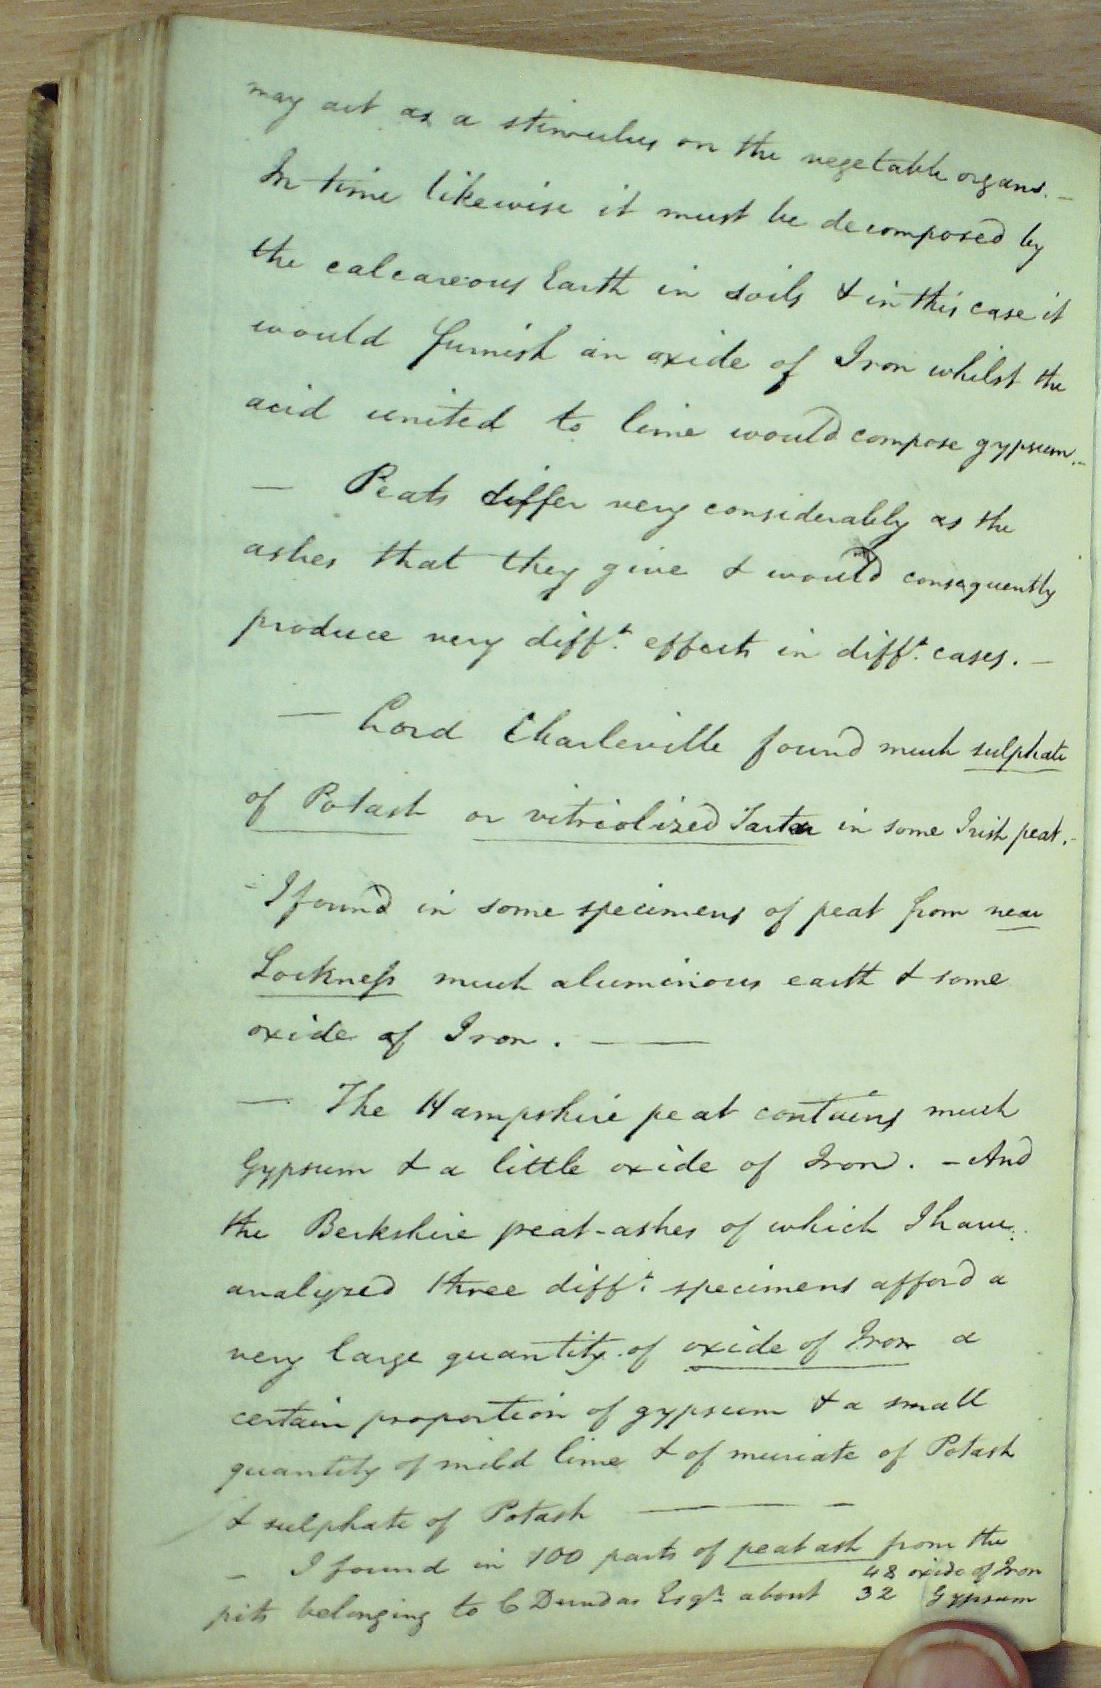 may act as a stimulus on the vegetable organs. —
In time likewise it must be decomposed by
the calcareous Earth in soils & in this case it
would furnish an oxide of Iron whilst the
acid united to lime would compose gypsum. –
— Peats differ very considerably as the
ashes that they give & would consequently
produce very difft. effects in difft. cases. —
— Lord Charleville found much sulphate
of Potash or vitriolized Tartar in some Irish peat. –
– I found in some specimens of peat from near
Lockness much aluminous earth & some
oxide of Iron. — —
— The Hampshire peat contains much
Gypsum & a little oxide of Iron. – And
the Berkshire peat-ashes of which I have
analyzed three difft. specimens afford a
very large quantity of oxide of Iron a
certain proportion of gypsum & a small
quantity of mild lime & of muriate of Potash
& sulphate of Potash — — –
– I found in 100 parts of peat ash from the
pits belonging to C Dundas Esqr. about 48 oxide of Iron
32 Gypsum